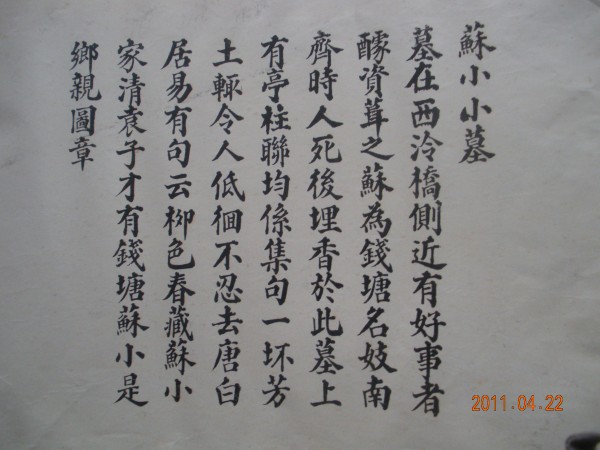 蘇小小墓
墓在西泠橋側近有好事者
醵資葺之蘇為錢塘名妓南
齊時人死後埋香於此墓上
有亭柱聯均係集句一坏芳
土輙令人低徊不忍去唐白
居易有句云柳色春藏蘇小
家清袁子才有錢塘蘇小是
鄉親圖章
2011.04.22